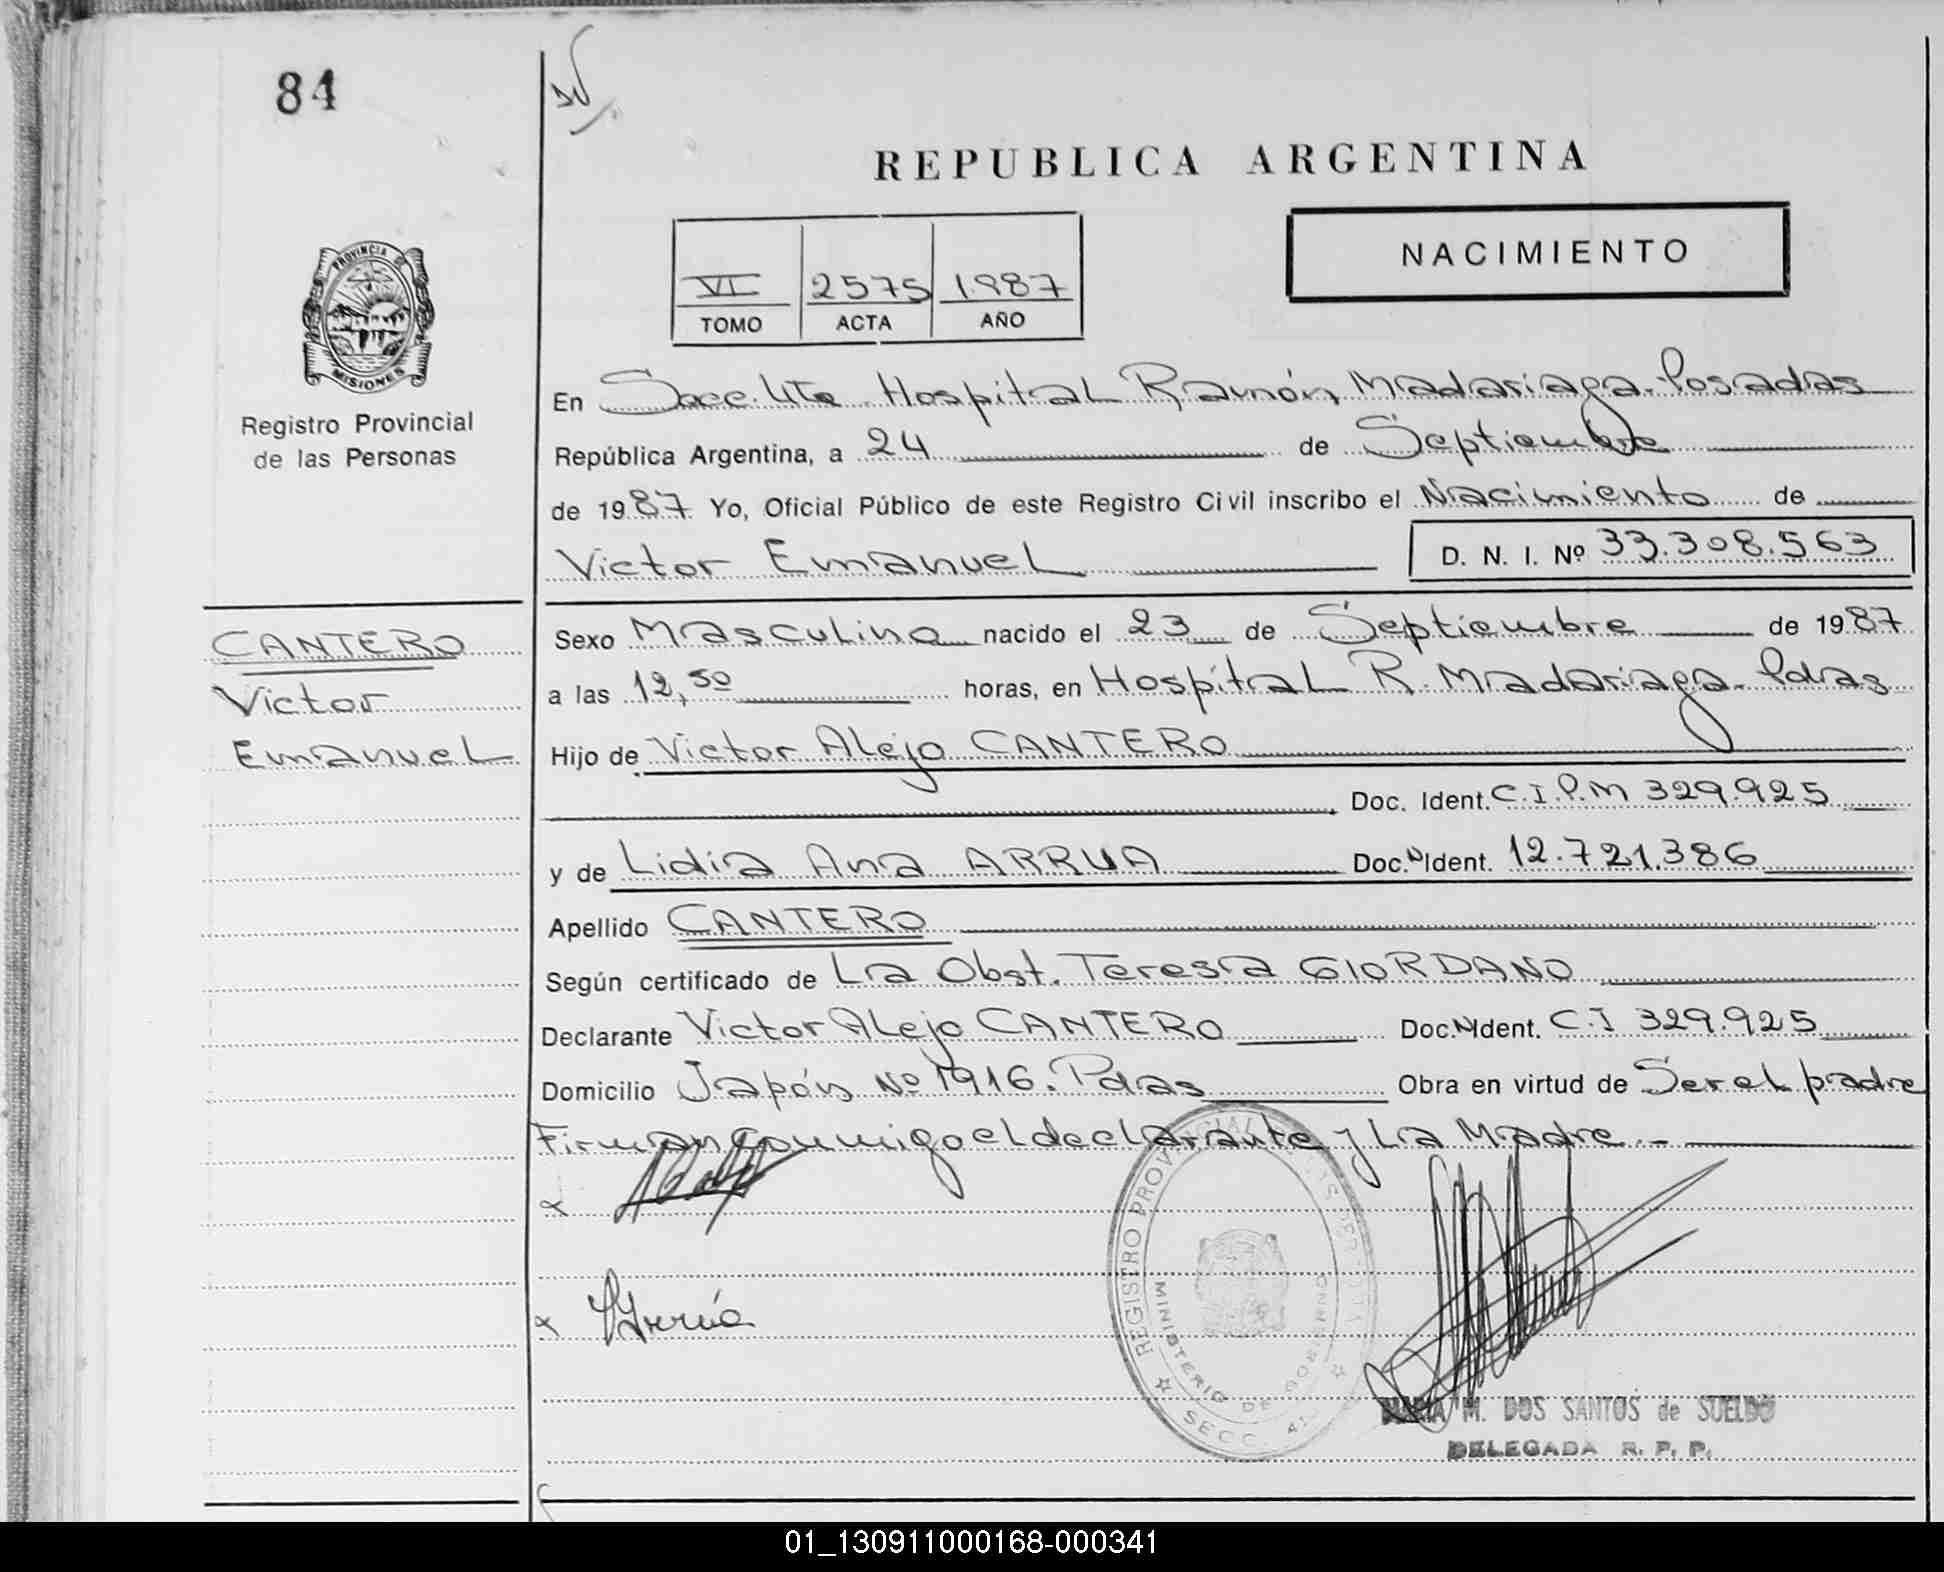 84
REPUBLICA ARGENTINA
NACIMIENTO
VI 2575 1987
TOMO ACTA AÑO
PROVINCIA DE
MISIONES
Registro Provincial
de las Personas
En Secc. 4ta Hospital Ramón Madariaga - Posadas
República Argentina, a 24 de Septiembre
de 1987 Yo, Oficial Público de este Registro Civil inscribo el Nacimiento de
Victor Emanuel D. N. I. Nº 33.308.563
CANTERO
Victor
Emanuel
Sexo Masculino nacido el 23 de Septiembre de 1987
a las 12,50 horas, en Hospital R. Madariaga - Pdas
Hijo de Victor Alejo CANTERO
Doc. Ident. C.I.P.M 329.925
y de Lidia Ana ARRUA Doc. N Ident. 12.721.386
Apellido CANTERO
Según certificado de La Obst. Teresa GIORDANO
Declarante Victor Alejo CANTERO Doc. N Ident. C.I 329.925
Domicilio Japón Nº 1916. Pdas Obra en virtud de Ser el padre
Firman conmigo el declarante y La Madre.-
REGISTRO PROVINCIAL DE LAS PERSONAS
MINISTERIO DE GOBIERNO
SECC. 4
Arrúa
MARIA M. DOS SANTOS de SUELDO
DELEGADA R. P. P.
01_130911000168-000341